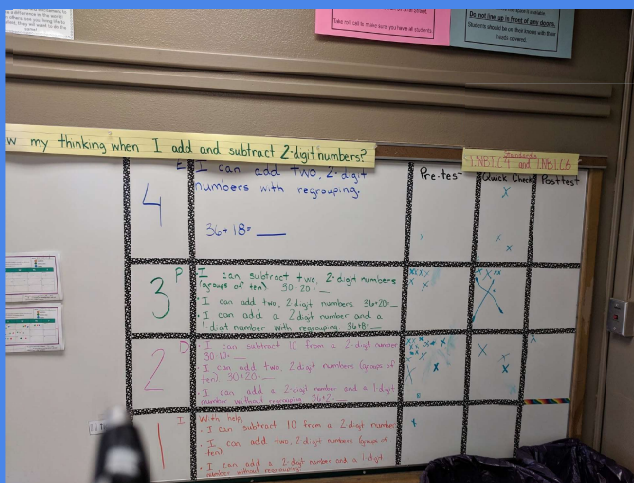 Take roll call to make sure you have all students.
Do not line up in front of gay doors.
Students should be on their knees with their
heads covered.
w my thinking when I add and subtract 2-digit numbers?
Standards
1.NBT.C.4 and 1.NBT.C.6
Pre-test Quick Check Posttest
4 E
I can add two, 2-digit
numbers with regrouping.
36+18=
3 P
I can subtract two, 2-digit numbers
(groups of ten) 30-20=
I can add two, 2 digit numbers 36+20=
I can add a 2digit number and a
1 digit number with regrouping 36+8=
2 D
I can subtract 10 from a 2-digit number
30-10=
I can add two, 2digit numbers (groups of
ten). 30+20=
I can add a 2-digit number and a 1-digit
number without regrouping 36+2=
1 I
With help,
I can subtract 10 from a 2-digit number
I can add two, 2-digit numbers (groups of
ten)
I can add a 2-digit number and a 1-digit
number without regrouping.